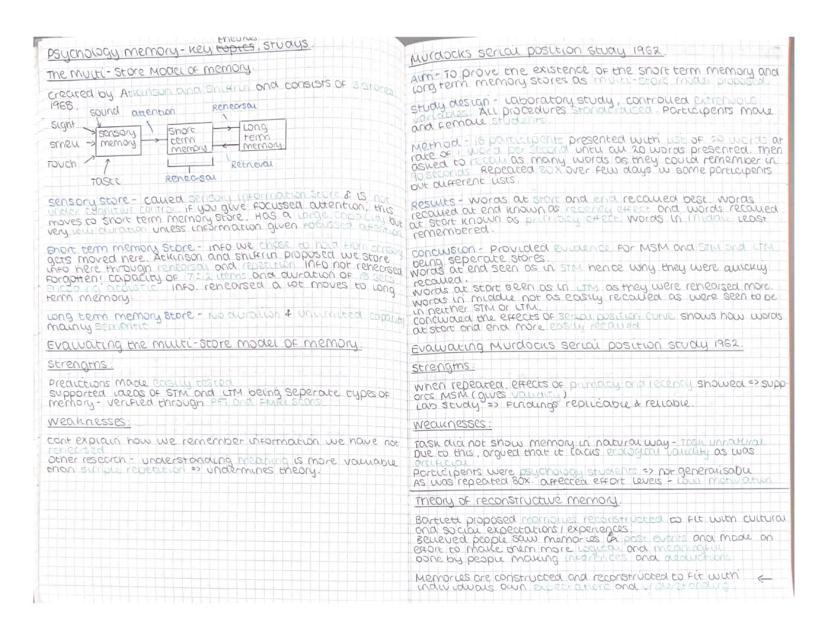 Psychology memory - key theories, studys.
The Multi-Store Model of memory.
created by Atkinson and Shiffrin and consists of 3 stores
1968.
sound attention Rehearsal
Sight
smell
Touch
Taste
sensory memory
Short term memory
Long term memory
Rehearsal
Retrieval
sensory store - called sensory information store & is not
under cognitive control. if you give focussed attention, this
moves to short term memory store. Has a large capacity but
very low duration unless information given focussed attention
Short term memory store - info we choose to hold from sensory
gets moved here. Atkinson and Shiffrin proposed we store
info here through rehearsal and repetition. Info not rehearsed
forgotten. capacity of 7±2 items and duration of
info. rehearsed a lot moves to long
term memory.
Long term memory store - No duration & unlimited capacity
mainly semantic
Evaluating the multi-store model of memory.
Strengths:
Predictions made easily tested
Supported ideas of STM and LTM being seperate types of
memory - verified through PET and FMRI scans
Weaknesses:
cant explain how we remember information we have not
rehearsed
Other research - understanding meaning is more valuable
than simple repetition => undermines theory.
Murdocks serial position study 1962
Aim - To prove the existence of the short term memory and
long term memory stores as multi-store model proposed.
Study design - Laboratory study, controlled extraneous
variables. All procedures standardised. Participants male
and female students.
Method - 16 participants presented with list of 20 words at
rate of 1 word per second until all 20 words presented. Then
asked to recall as many words as they could remember in
90 seconds. Repeated 80x over few days w some participants
but different lists.
Results - Words at start and end recalled best. Words
recalled at end known as recency effect and words recalled
at start known as primacy effect. Words in middle least
remembered.
Conclusion - Provided evidence for MSM and STM and LTM
being seperate stores.
Words at end seen as in STM hence why they were quickly
recalled.
Words at start seen as in LTM as they were rehearsed more.
Words in middle not as easily recalled as were seen to be
in neither STM or LTM.
Concluded the effects of serial position curve shows how words
at start and end more easily recalled
Evaluating Murdocks serial position study 1962.
Strengths:
When repeated, effects of primacy and recency showed => supp-
orts MSM (gives validity)
Lab study => Findings replicable & reliable.
Weaknesses:
Task did not show memory in natural way - Task unnatural
Due to this, argued that it lacks ecological validity as was
artificial
Participants were psychology students => not generalisable
As was repeated 80x affected effort levels - low motivation
Theory of reconstructive memory.
Bartlett proposed memories reconstructed to fit with cultural
and social expectations/experiences.
Believed people saw memories as past events and made an
effort to make them more logical and meaningful
Done by people making inferences and deductions
Memories are constructed and reconstructed to fit with ←
individuals own expectations and understanding